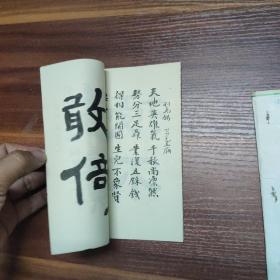 刘禹锡 蜀先主庙
天地英雄气 千秋尚凛然
势分三足鼎 业复五铢钱
得相能开国 生儿不象贤
敢
倍